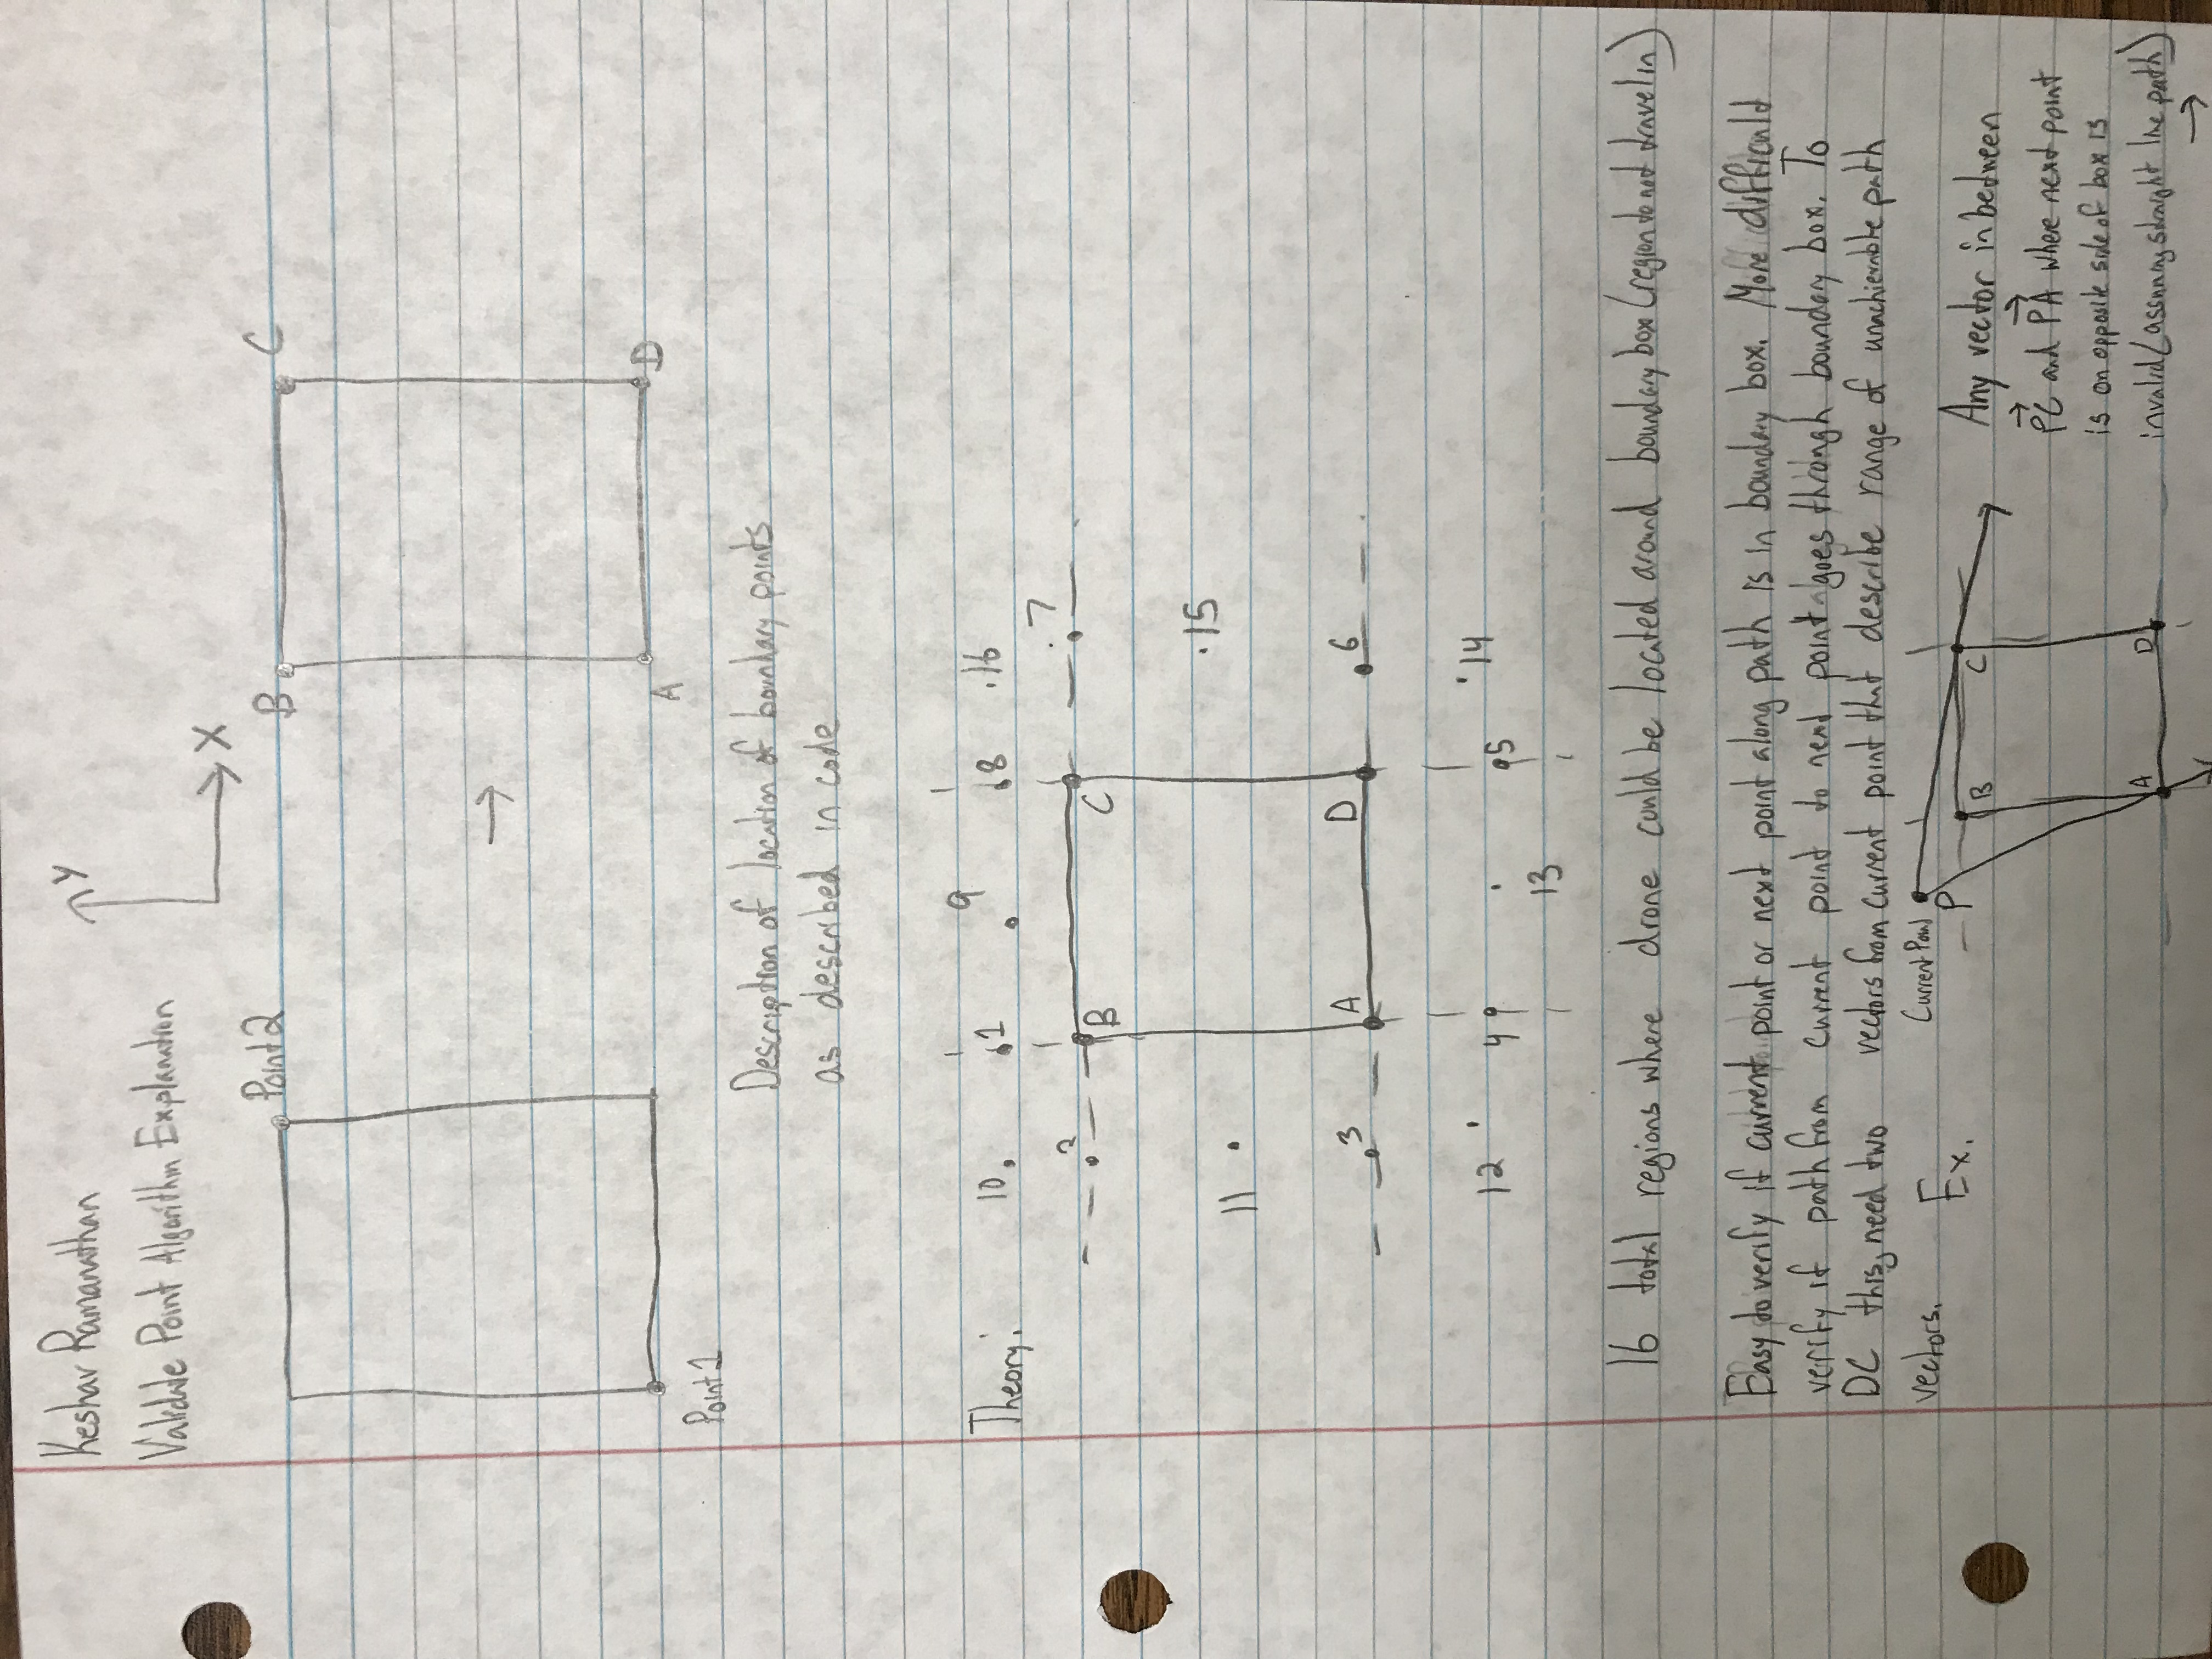 Keshav Ramanathan
Y
Validate Point Algorithm Explanation
X
Point 2
B
C
→
A
D
Point 1
Description of location of boundary points
as described in code
Theory:
10
1
9
8
16
2
7
B
C
15
11
3
A
D
6
12
4
13
5
14
16 total regions where drone could be located around boundary box (region to not travel in)
Easy to verify if current point or next point along path is in boundary box. More difficult
verify if path from current point to next point goes through boundary box. To
DC this, need two vectors from current point that describe range of unachievable path
vectors.
Ex.
Current Point
P
B
C
A
D
Any vector in between
PC and PA where next point
is on opposite side of box is
invalid (assuming straight line path)
→